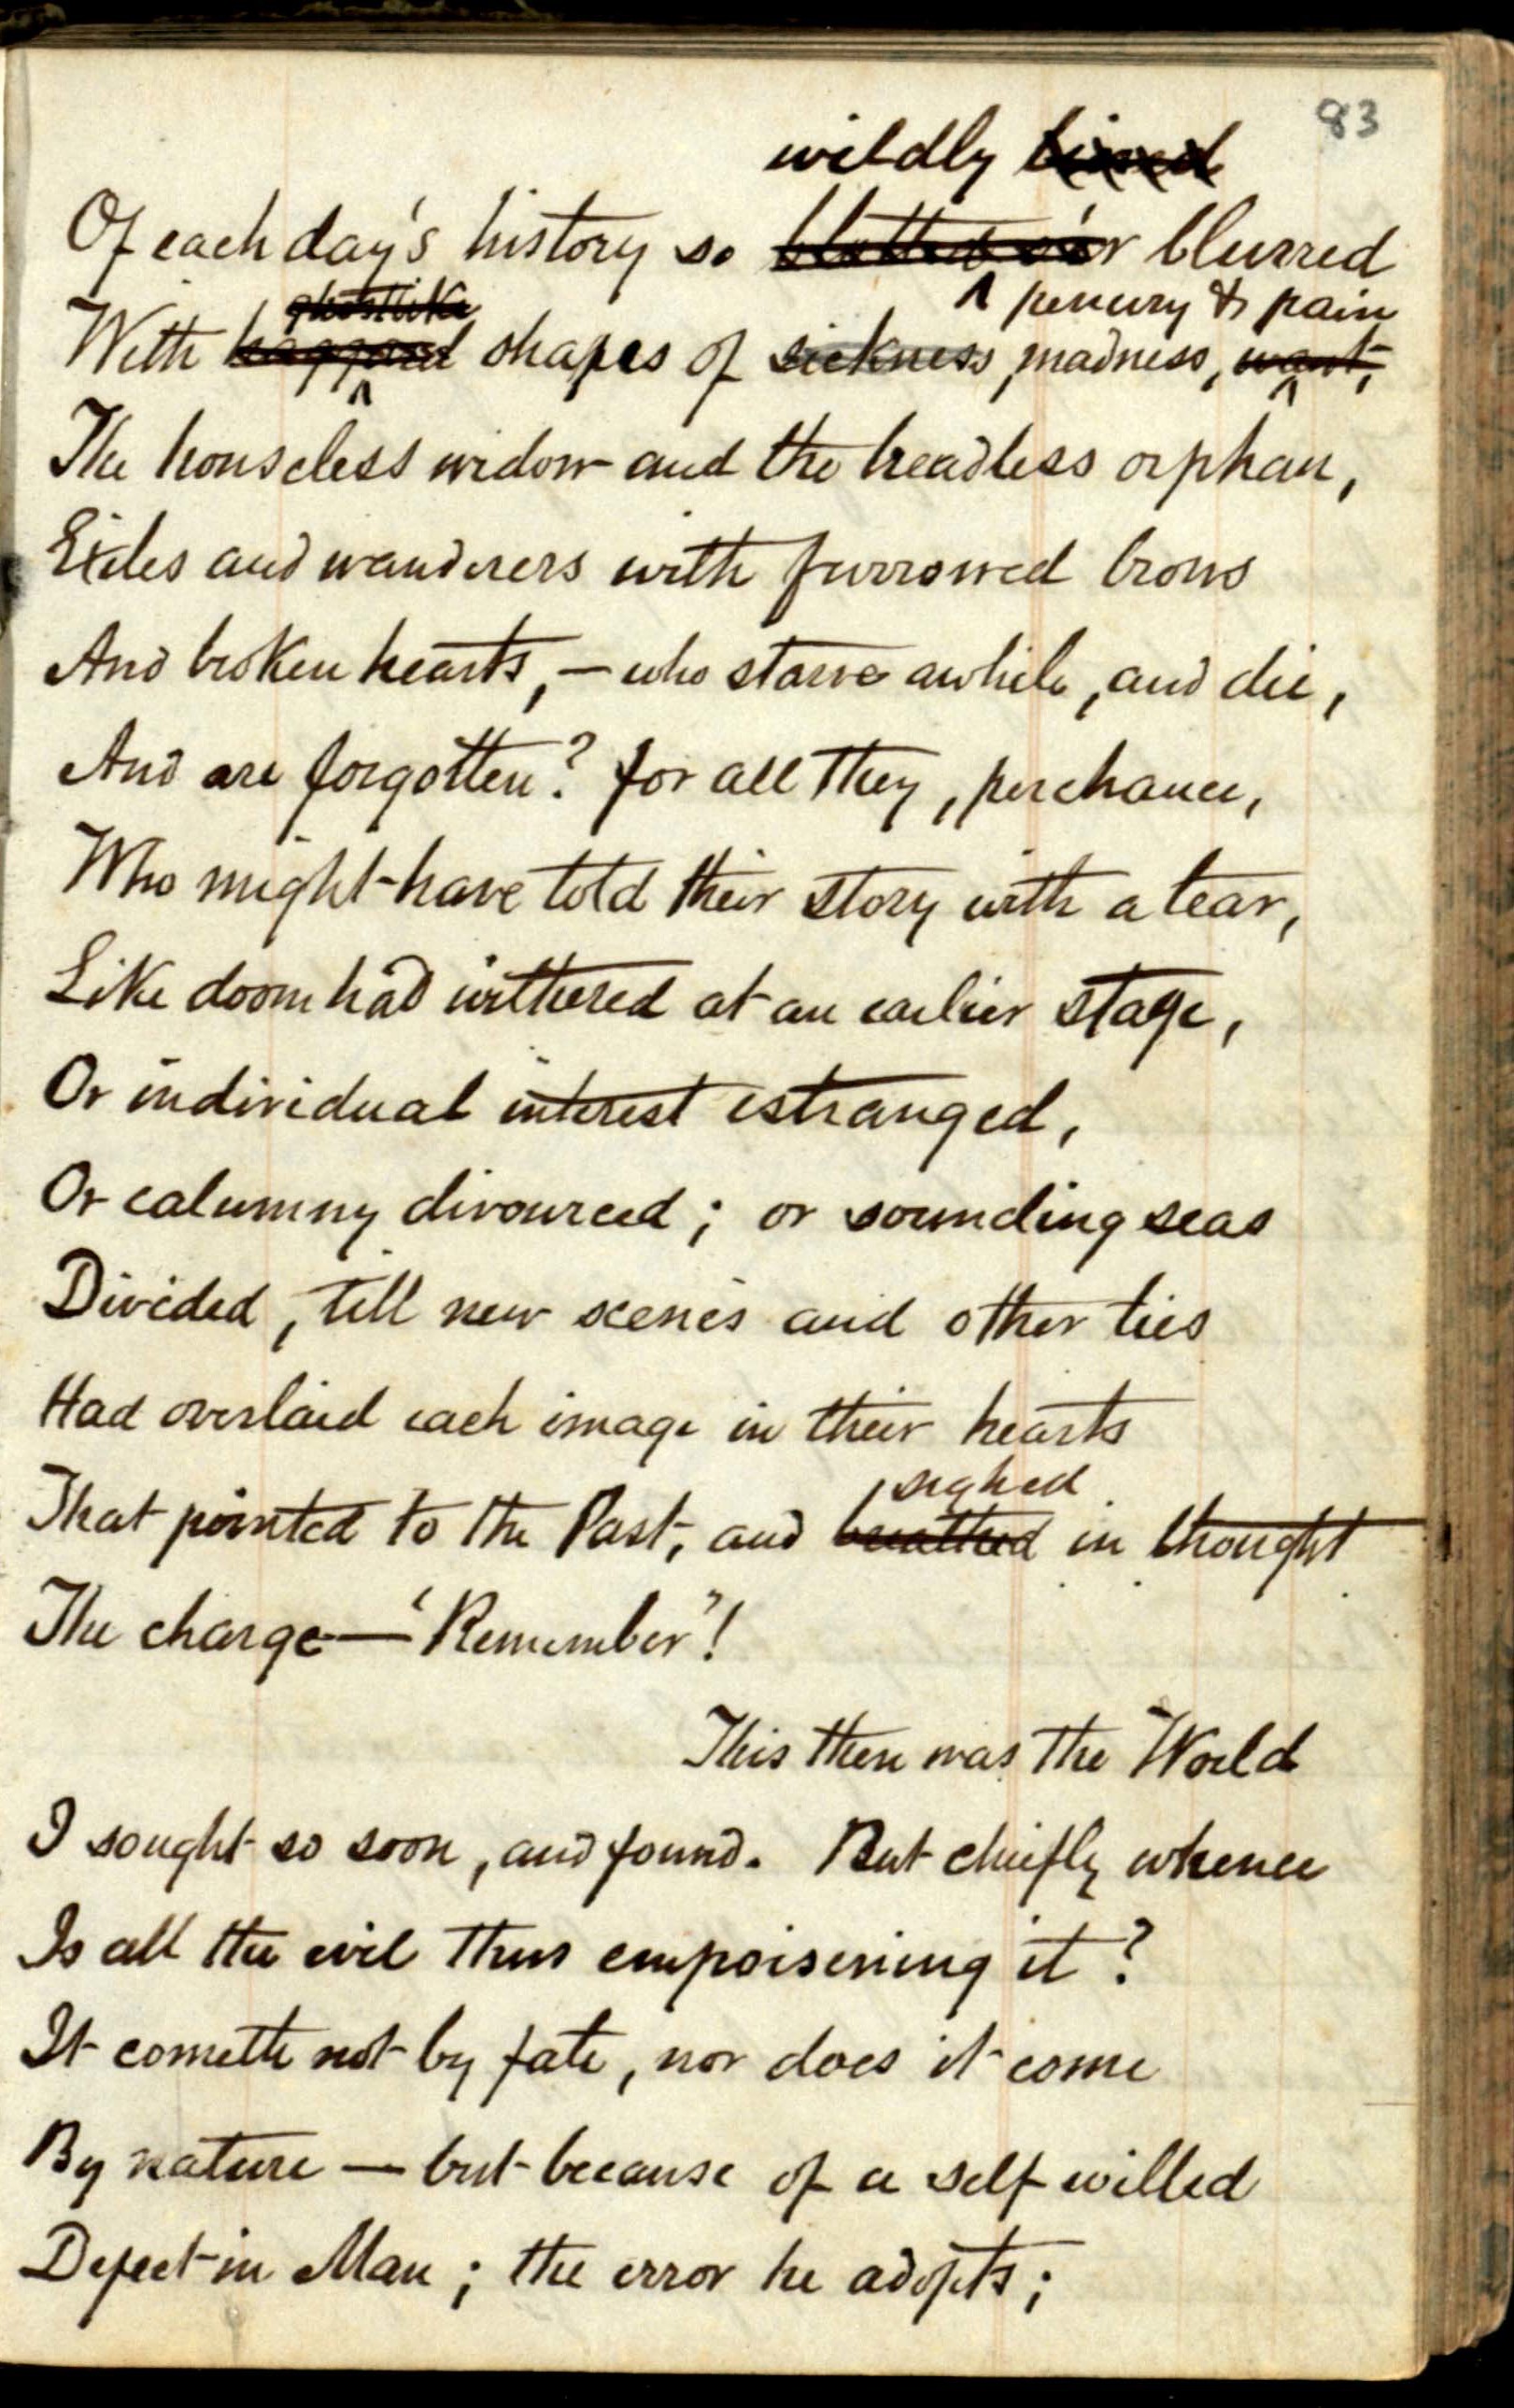 83
wildly
Of each day's history so blotted o'er blurred
ghostlike penury & pain
With haggard shapes of sickness, madness, want,
The houseless widow and the breadless orphan,
Exiles and wanderers with furrowed brows
And broken hearts, — who starve awhile, and die,
And are forgotten? for all they, perchance,
Who might have told their story with a tear,
Like doom had withered at an earlier stage,
Or individual interest estranged,
Or calumny divourced; or sounding seas
Divided, till new scenes and other ties
Had overlaid each image in their hearts
sighed
That pointed to the Past, and breathed in thought
The charge — 'Remember'!
This then was the World
I sought so soon, and found. But chiefly whence
Is all the evil thus empoisening it?
It cometh not by fate, nor does it come
By nature — but because of a self willed
Defect in Man; the error he adopts;